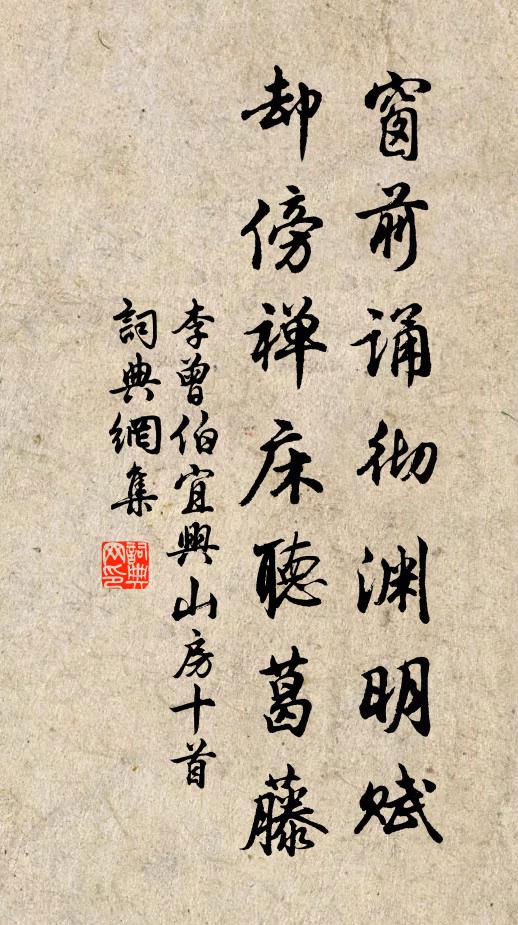 窗前诵彻渊明赋
却傍禅床聽葛藤
李曾伯宜興山房十首
詞典網集
詞典网印